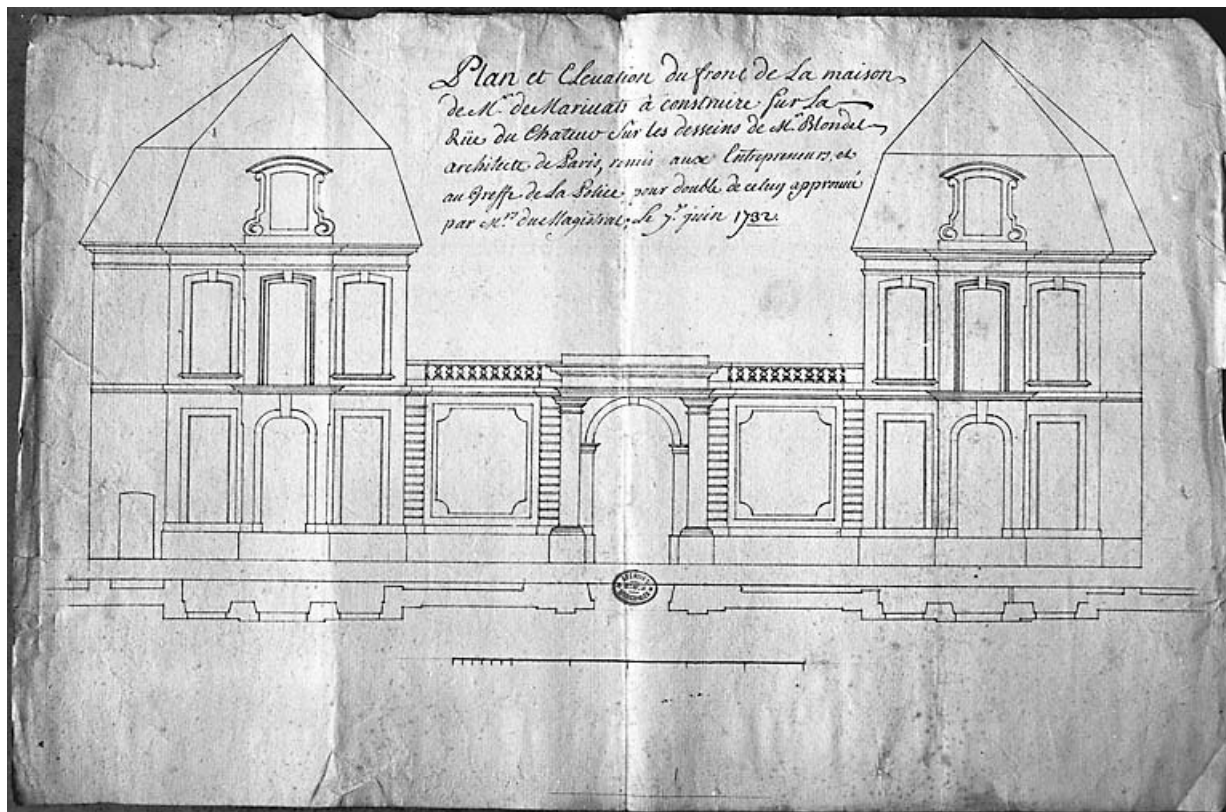 Plan et Elevation du front de La maison
de Mr. de Marivats à construire sur La
Rüe du Chateur sur les desseins de Mr. Blondel
architecte de Paris, remis aux Entrepreneurs, et
au Greffe de La Police pour double de celuy approuvé
par Mrs. du Magistrat, Le 7e. juin 1732.